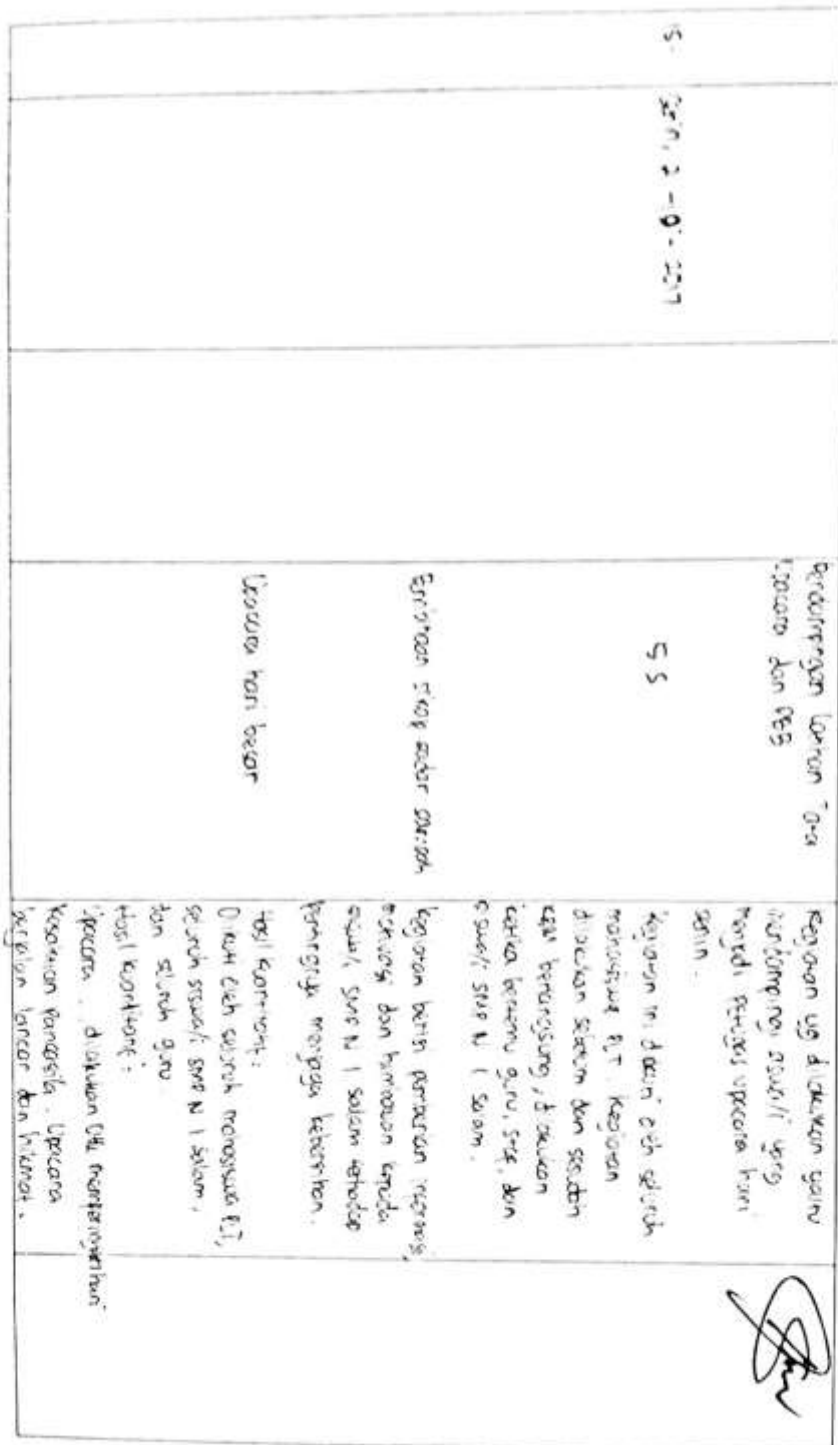 Pendampingan Latihan Tata
Upacara dan PBB
Kegiatan yg dilakukan yaitu
mendampingi siswa/i yang
menjadi petugas upacara hari
senin.
15. Senin, 2 - 10 - 2017
5 S
Kegiatan ini diikuti oleh seluruh
mahasiswa PLT. Kegiatan
dilakukan sebelum dan sesudah
KBM berlangsung, dilakukan
ketika bertemu guru, staf, dan
siswa/i SMP N 1 Salam.
sikap sadar sampah
Kegiatan berisi pemberian informasi,
motivasi dan himbauan kepada
siswa/i SMP N 1 Salam terhadap
pentingnya menjaga kebersihan.
Upacara hari besar
Hasil kuantitatif:
Diikuti oleh seluruh mahasiswa PLT,
seluruh siswa/i SMP N 1 Salam,
dan seluruh guru.
Hasil kualitatif:
Upacara dilakukan utk memperingati hari
Kesaktian Pancasila. Upacara
berjalan lancar dan hikmat.